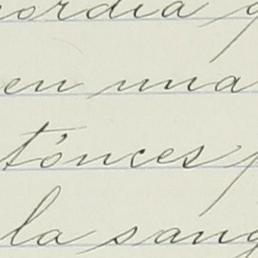 cordia
en una
tónces
la sang